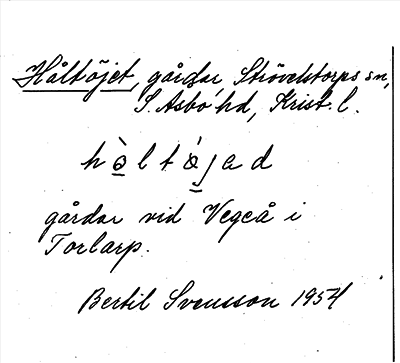 Håltöjet, gårdar Strövelstorps sn,
S. Åsbo hd, Krist. l.
hə̀ltǿjad
gårdar vid Vegeå i
Torlarp.
Bertil Svensson 1954